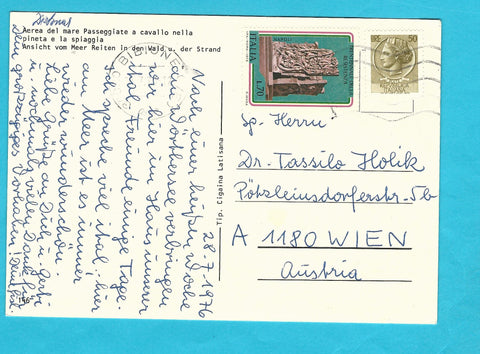 Aerea del mare Passeggiate a cavallo nella
pineta e la spiaggia
Ansicht vom Meer Reiten in den Wald u. der Strand
BIBIONE
28-7-1976
Nach einer heißen Woche
am Wörthersee verbringen
wir hier im Haus unserer
ital. Freunde einige Tage.
Ich spreche viel ital.; hier
am Meer ist es immer
wieder wunderschön.
Liebe Grüße an Dich u. Gerti
u. nochmals vielen Dank für
Dein großzügiges Vorhaben!
156
Tip. Cigaina Latisana
ITALIA
NAPOLI
L.70
50
ITALIANE
Sp. Herrn
Dr. Tassilo Holik
Pötzleinsdorferstr. 5b
A 1180 WIEN
Austria